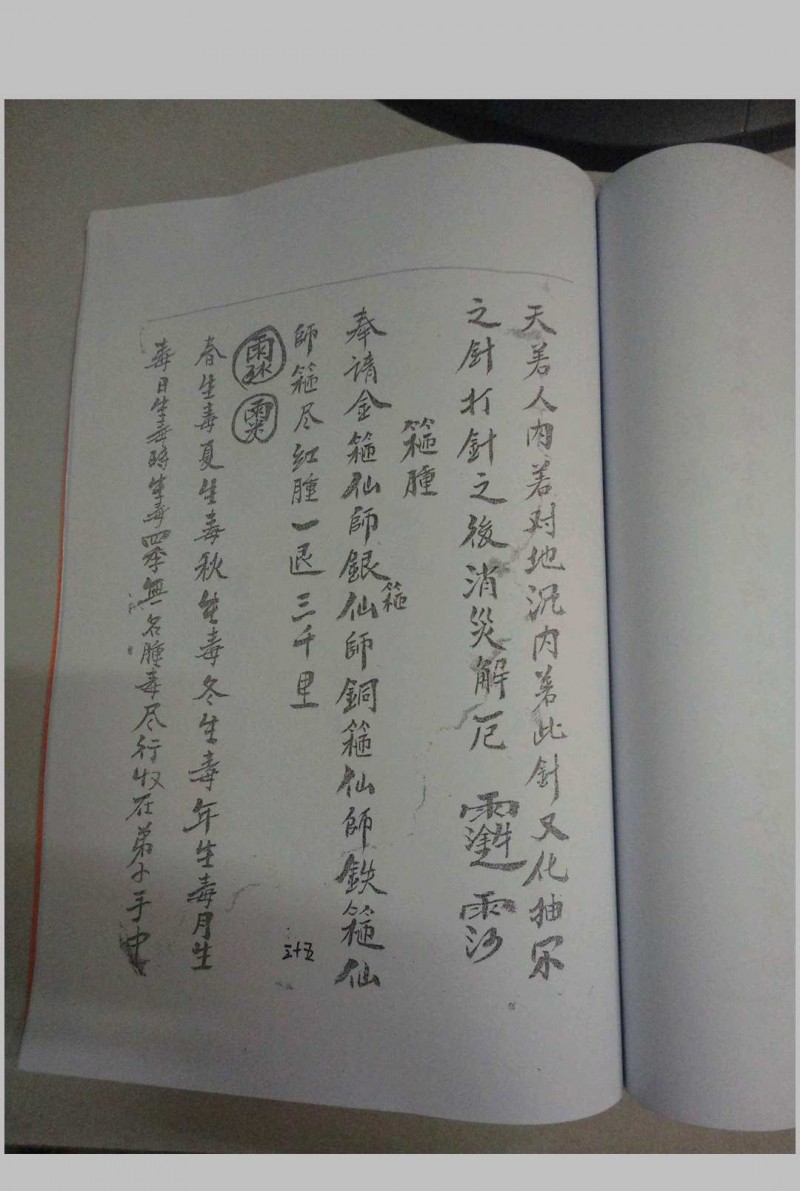 天若人内若对地泥内若此針又化抽尿
之針打針之後消災解厄
箍腫
奉請金箍仙師銀箍仙師銅箍仙師鉄箍仙
師箍尽紅腫一退三千里
三十五
春生毒夏生毒秋生毒冬生毒年生毒月生
毒日生毒時生毒四季無名腫毒尽行收在弟子手中